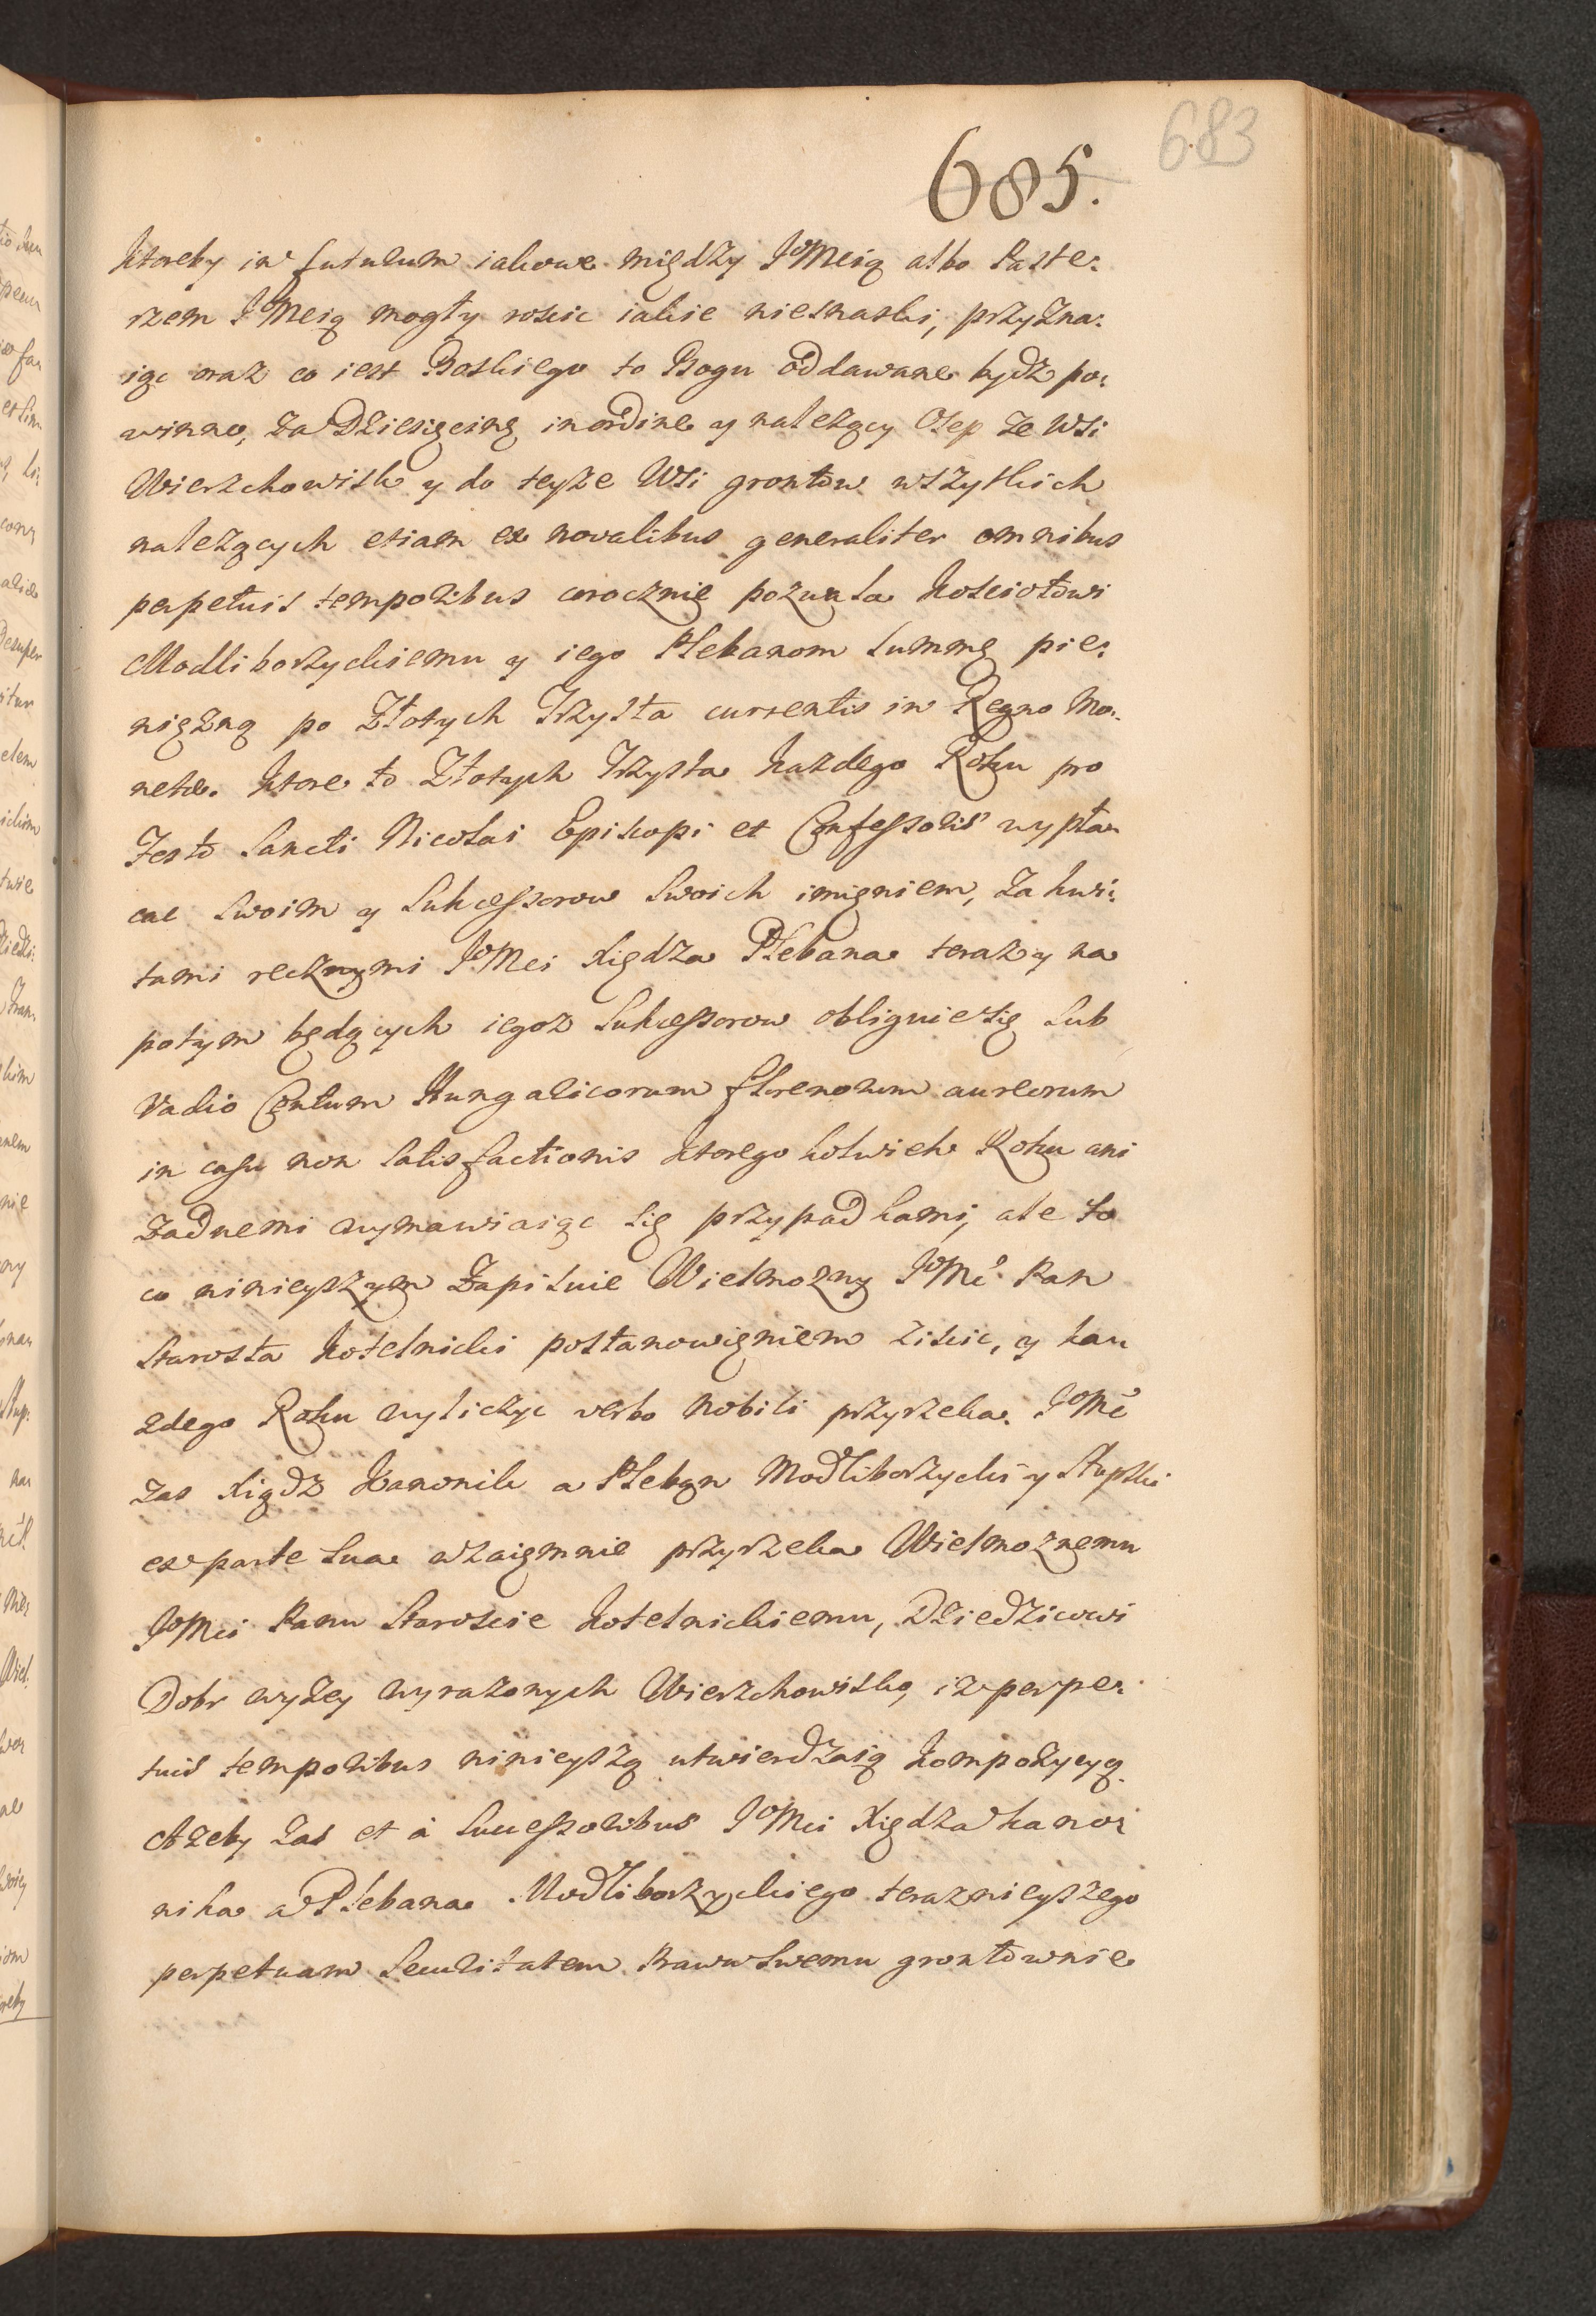 683
685.
ktoreby in futurum iakowe między JoMcią albo Paste:
rzem JMcią mogły roscic iakie niesnaski, przyzna:
iąc oraz co iest Boskiego to Bogu oddawane bydz po:
winno, za Dziesięcinę in ordine y nalezący Osep ze Wsi
Wierzchowisk y do teyze Wsi grontow wszytkich
nalezących etiam ex novalibus generaliter omnibus
perpetuis temporibus corocznię pozwala Kosciołowi
Modliborzyckiemu y iego Plebanom summę pie:
niężną po Złotych Trzysta currentis in Regno Mo:
netae. Ktore to Złotych Trzysta Kazdego Roku pro
Festo Sancti Nicolai Episkopi et Confessoris wypła:
cac swoim y Sukcessorow swoich imięniem, za kwi:
tami ręcznymi JoMci Xiędza Plebana teraz y na
potym będących iegoz Sukcessorow obliguie się sub
Vadio Centum Hungaricorum florenorum aureorum
in casu non satisfactionis ktorego kolwiek Roku ani
zadnemi wymawiaiąc się przypadkami, ale to
co ninieyszym Zapisuie Wielmozny JoMć Pan
Starosta Kotelnicki postanowięniem ziscic, y ka:
zdego Roku wyliczyc verbo nobili przyrzeka. JoMć
zas Xiądz Kanonik a Pleban Modliborzycki y Słupski
ex parte sua wzaięmnie przyrzeka Wielmoznemu
JoMci Panu Staroscie Kotelnickiemu, Dziedzicowi
Dobr wyzey wyrazonych Wierzchowisko, iz perpe:
tuis temporibus ninieyszą utwierdzaią kompozycyą.
Azeby zas et à Successoribus JoMci Xiędza Kano:
nika a Plebana Modliborzyckiego teraznieyszego
perpetuam securitatem Prawu swemu grontownie